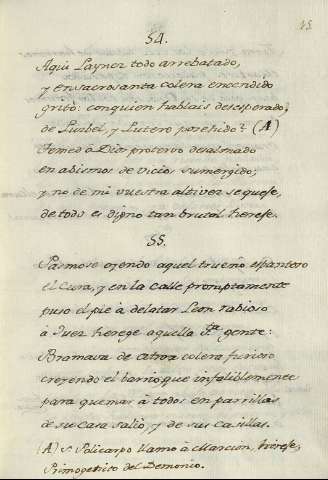 45
54.
Aqui Laynez todo arrebatado,
y en sacrosanta colera encendido
gritò: con quien hablais desesperado,
de Luzbel, y Lutero
Temed à Dios protervo desalmado
en abismos de vicios sumergido;
y no de mi vuestra altivez se quese,
de todo es digno tan brutal herese.
55.
Pasmose oyendo aquel trueno espantoso
el Cura, y en la calle promptamente
puso el pie à delatar Leon rabioso
à Juez herege aquella Sta. gente:
Bramava de atroz colera furioso
creyendo el barrio, que infaliblemente
para quemar à todos en parrillas
de su casa saliò, y de sus casillas.
(A) S. Policarpo llamò à Marcion, herese,
Primogenito del Demonio.